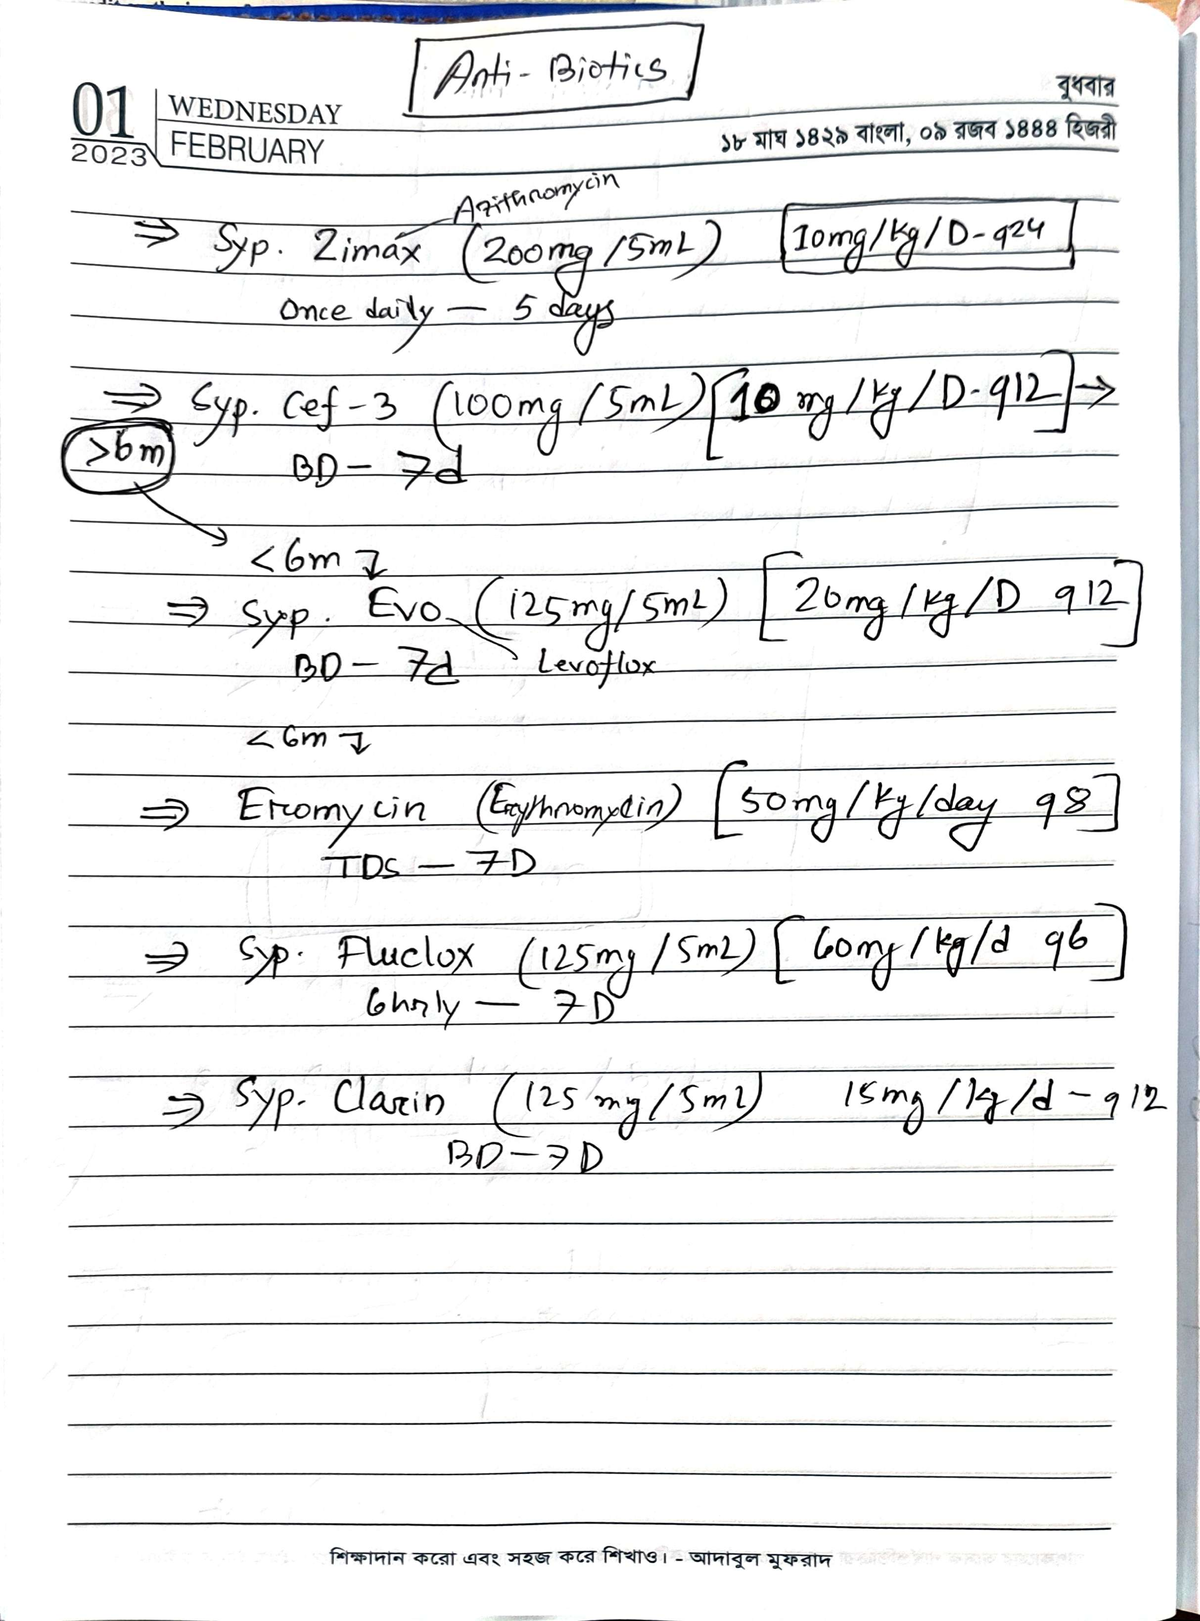 Anti-Biotics
01
2023
WEDNESDAY
FEBRUARY
বুধবার
১৮ মাঘ ১৪২৯ বাংলা, ০৯ রজব ১৪৪৪ হিজরী
Azithromycin
⇒ Syp. Zimax (200mg/5mL) 10mg/kg/D-q24
Once daily — 5 days
⇒ Syp. Cef-3 (100mg/5mL) [10 mg/kg/D-q12] →
>6m
BD — 7d
<6m ↓
⇒ Syp. Evo (125mg/5mL) [20mg/kg/D q12]
BD — 7d Levoflox
<6m ↓
⇒ Eromycin (Erythromycin) [50mg/kg/day q8]
TDS — 7D
⇒ Syp. Fluclox (125mg/5mL) [60mg/kg/d q6]
6hrly — 7D
⇒ Syp. Clarin (125mg/5mL) 15mg/kg/d-q12
BD — 7D
শিক্ষাদান করো এবং সহজ করে শিখাও। - আদাবুল মুফরাদ